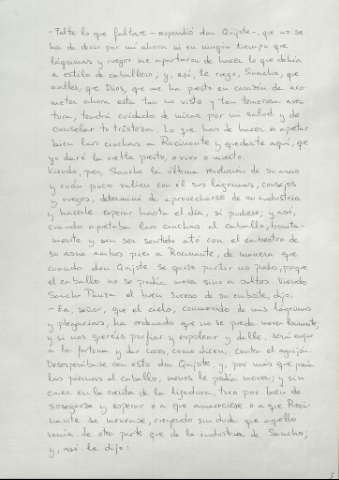 -Falte lo que faltare -respondió don Quijote-, que no se
ha de decir por mí ahora ni en ningún tiempo que
lágrimas y ruegos me apartaron de hacer lo que debía
a estilo de caballero; y, así, te ruego, Sancho, que
calles, que Dios, que me ha puesto en corazón de aco-
meter ahora esta tan no vista y tan temerosa aven-
tura, tendrá cuidado de mirar por mi salud y de
consolar tu tristeza. Lo que has de hacer es apretar
bien las cinchas a Rocinante y quedarte aquí, que
yo daré la vuelta presto, o vivo o muerto.
Viendo, pues, Sancho la última resolución de su amo
y cuán poco valían con él sus lágrimas, consejos
y ruegos, determinó de aprovecharse de su industria
y hacerle esperar hasta el día, si pudiese; y así,
cuando apretaba las cinchas al caballo, bonita-
mente y sin ser sentido ató con el cabestro de
su asno ambos pies a Rocinante, de manera que
cuando don Quijote se quiso partir no pudo, porque
el caballo no se podía mover sino a saltos. Viendo
Sancho Panza el buen suceso de su embuste, dijo:
-Ea, señor, que el cielo, conmovido de mis lágrimas
y plegarias, ha ordenado que no se pueda mover Rocinante;
y si vos queréis porfiar y espolear y dalle, será enojar
a la fortuna y dar coces, como dicen, contra el aguijón.
Desesperábase con esto don Quijote, y, por más que ponía
las piernas al caballo, menos le podía mover; y sin
caer en la cuenta de la ligadura, tuvo por bien de
sosegarse y esperar o a que amaneciese o a que Roci-
nante se menease, creyendo sin duda que aquello
venía de otra parte que de la industria de Sancho;
y, así, le dijo: